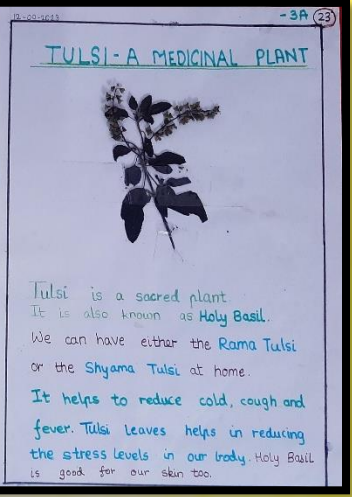 12-09-2023
- 3A 23
TULSI - A MEDICINAL PLANT
Tulsi is a sacred plant
It is also known as Holy Basil.
We can have either the Rama Tulsi
or the Shyama Tulsi at home.
It helps to reduce cold, cough and
fever. Tulsi leaves helps in reducing
the stress levels in our body. Holy Basil
is good for our skin too.